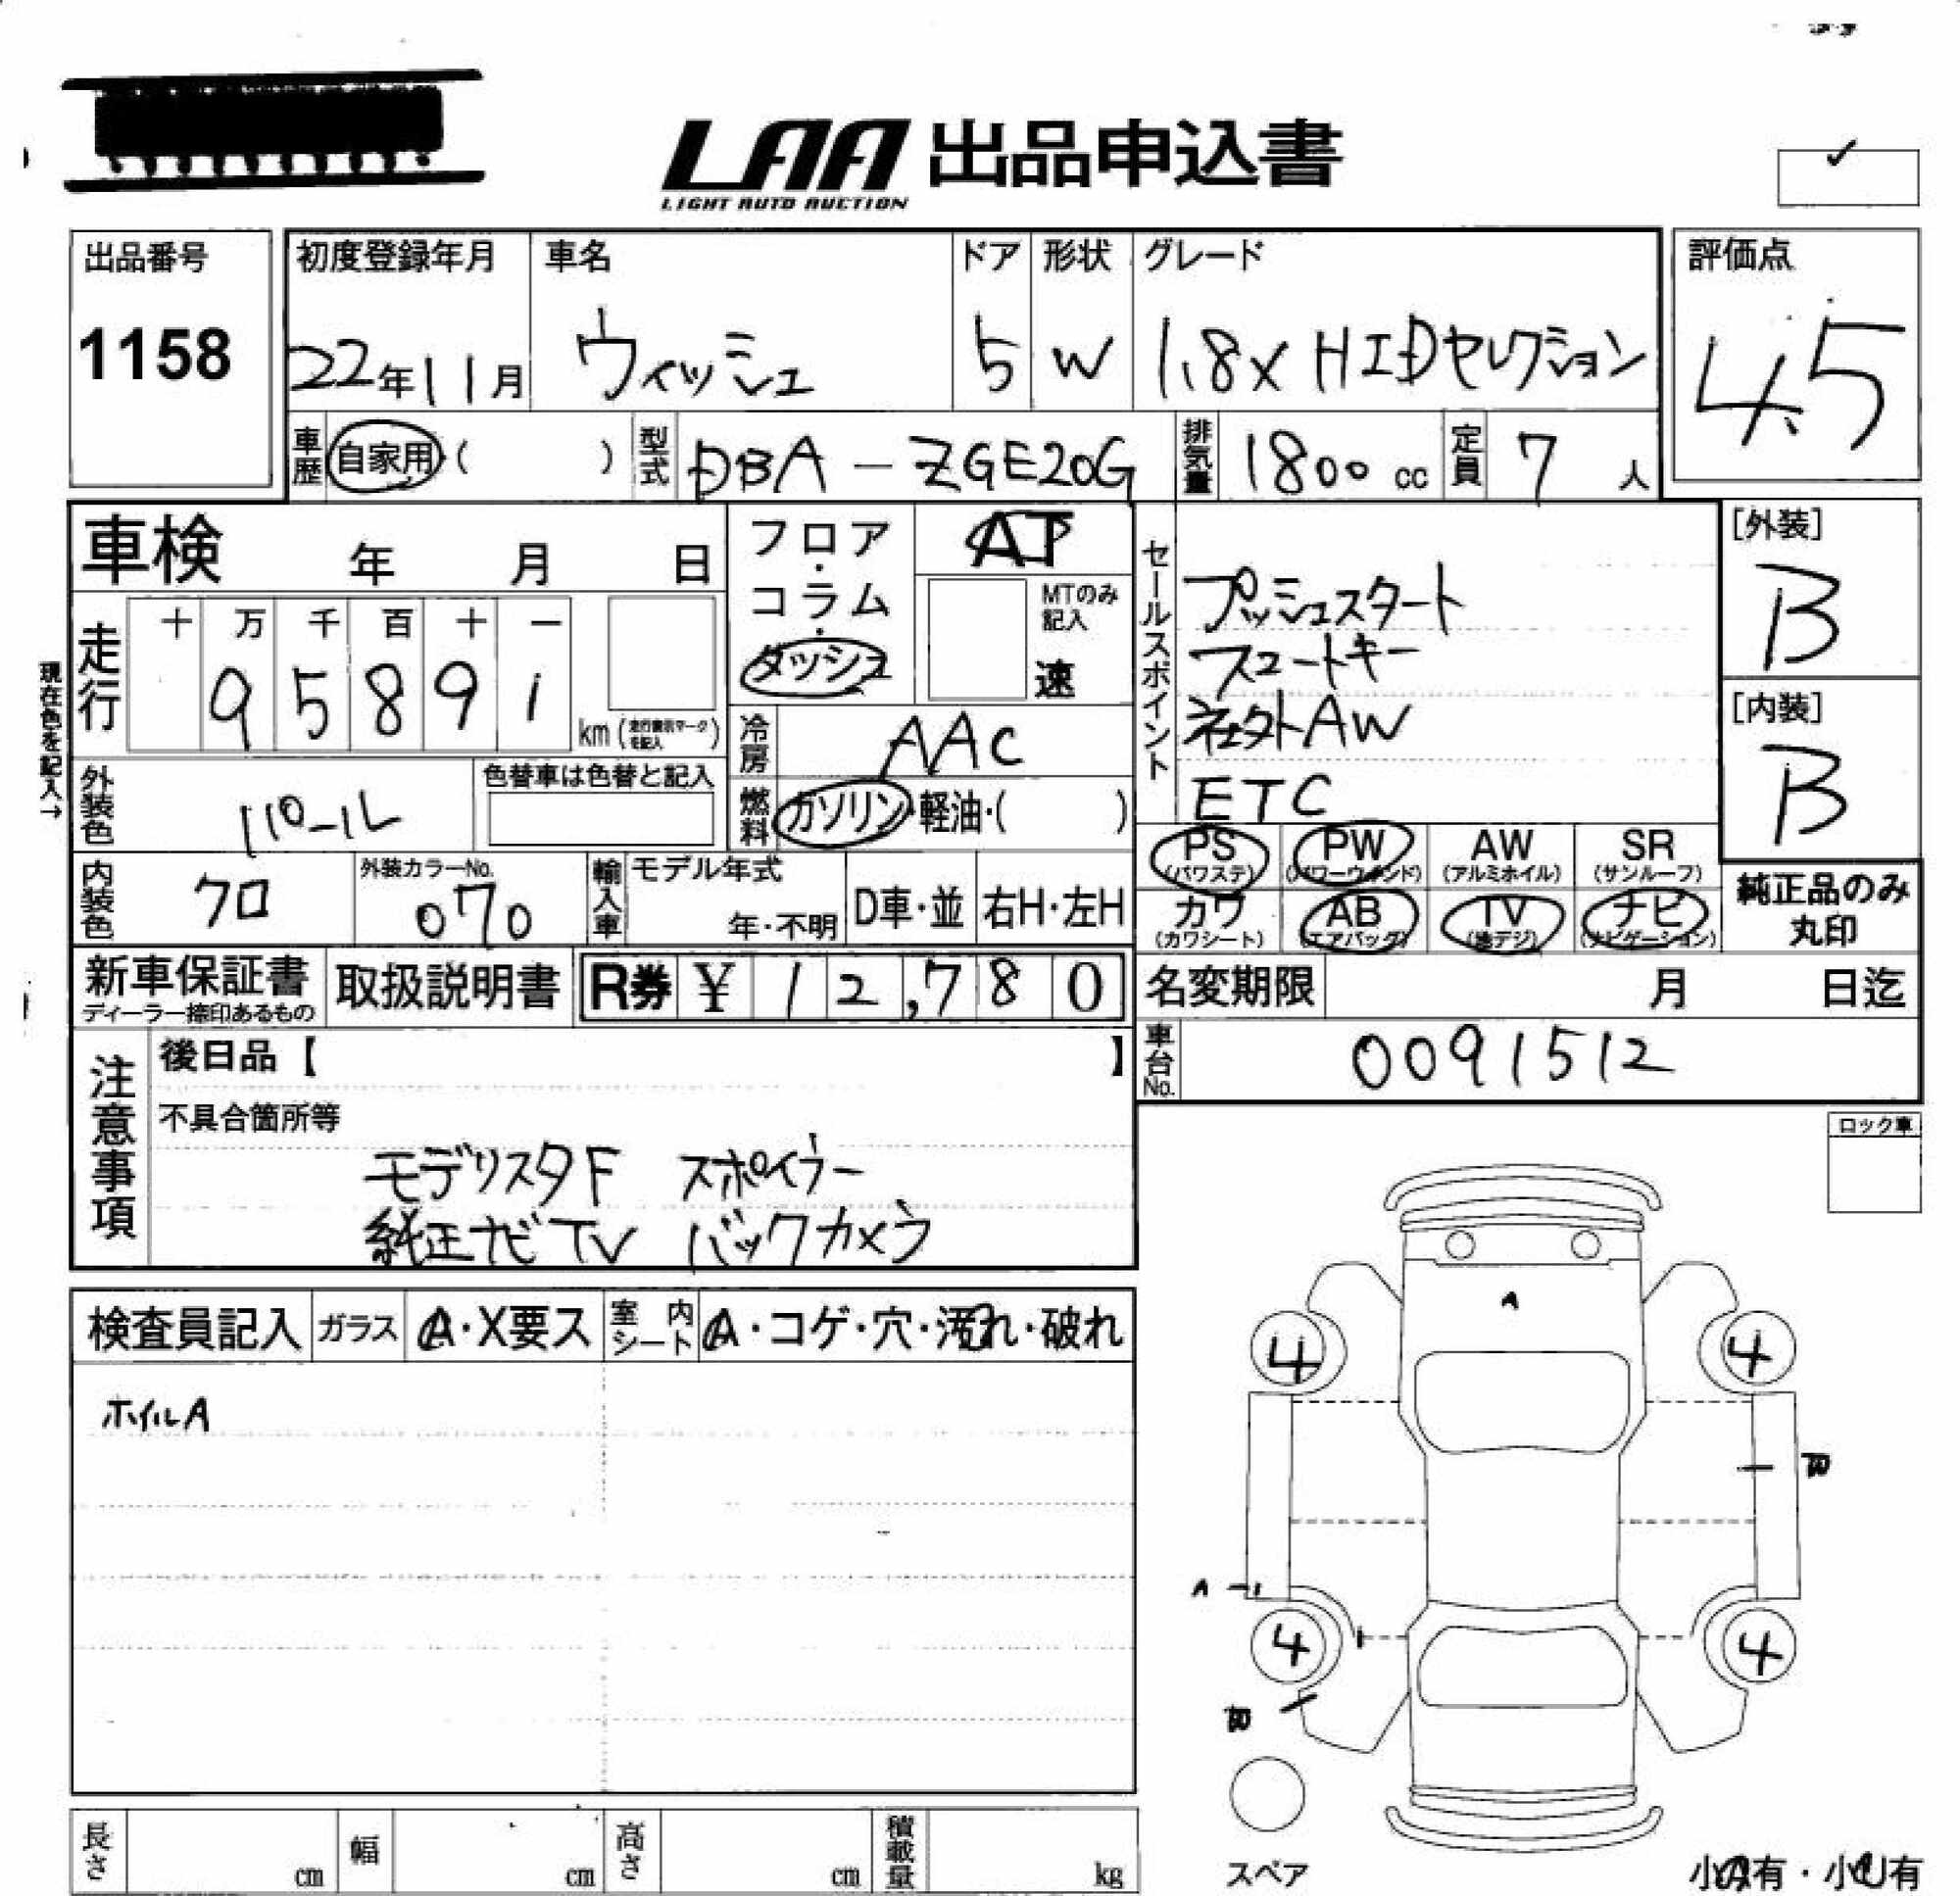 LAA 出品申込書
LIGHT AUTO AUCTION
出品番号
1158
初度登録年月
22年11月
車名
ウィッシュ
ドア
5
形状
W
グレード
1.8X HIDセレクション
評価点
4.5
車歴 自家用・( )
型式 DBA-ZGE20G
排気量 1800 cc
定員 7人
車検 年 月 日
フロア・コラム・ダッシュ
AT
MTのみ記入
速
走行
十 万 千 百 十 一
9 5 8 9 1
km (走行表示マークを記入)
現在色を記入→
冷房 AAC
燃料 ガソリン・軽油・( )
外装色 パール
色替車は色替と記入
内装色 クロ
外装カラーNo. 070
輸入車 モデル年式
年・不明
D車・並 右H・左H
セールスポイント
プッシュスタート
スマートキー
社外AW
ETC
[外装]
B
[内装]
B
PS (パワステ) PW (パワーウィンド) AW (アルミホイル) SR (サンルーフ)
カワ (カワシート) AB (エアバッグ) TV (地デジ) ナビ (ナビゲーション)
純正品のみ丸印
新車保証書
ディーラー捺印あるもの
取扱説明書
R券 ¥ 12,780
名変期限 月 日迄
車台No. 0091512
注意事項
後日品【 】
不具合箇所等
モデリスタF スポイラー
純正ナビTV バックカメラ
検査員記入 ガラス A・X要ス 室内シート A・コゲ・穴・汚れ・破れ
ホイルA
ロック車
A
4 4
A
4 4
スペア
長さ cm 幅 cm 高さ cm 積載量 kg
小A有・小U有